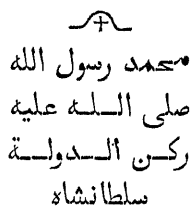 محمد رسول الله
صلى الله عليه
ركن الدولة
سلطانشاه